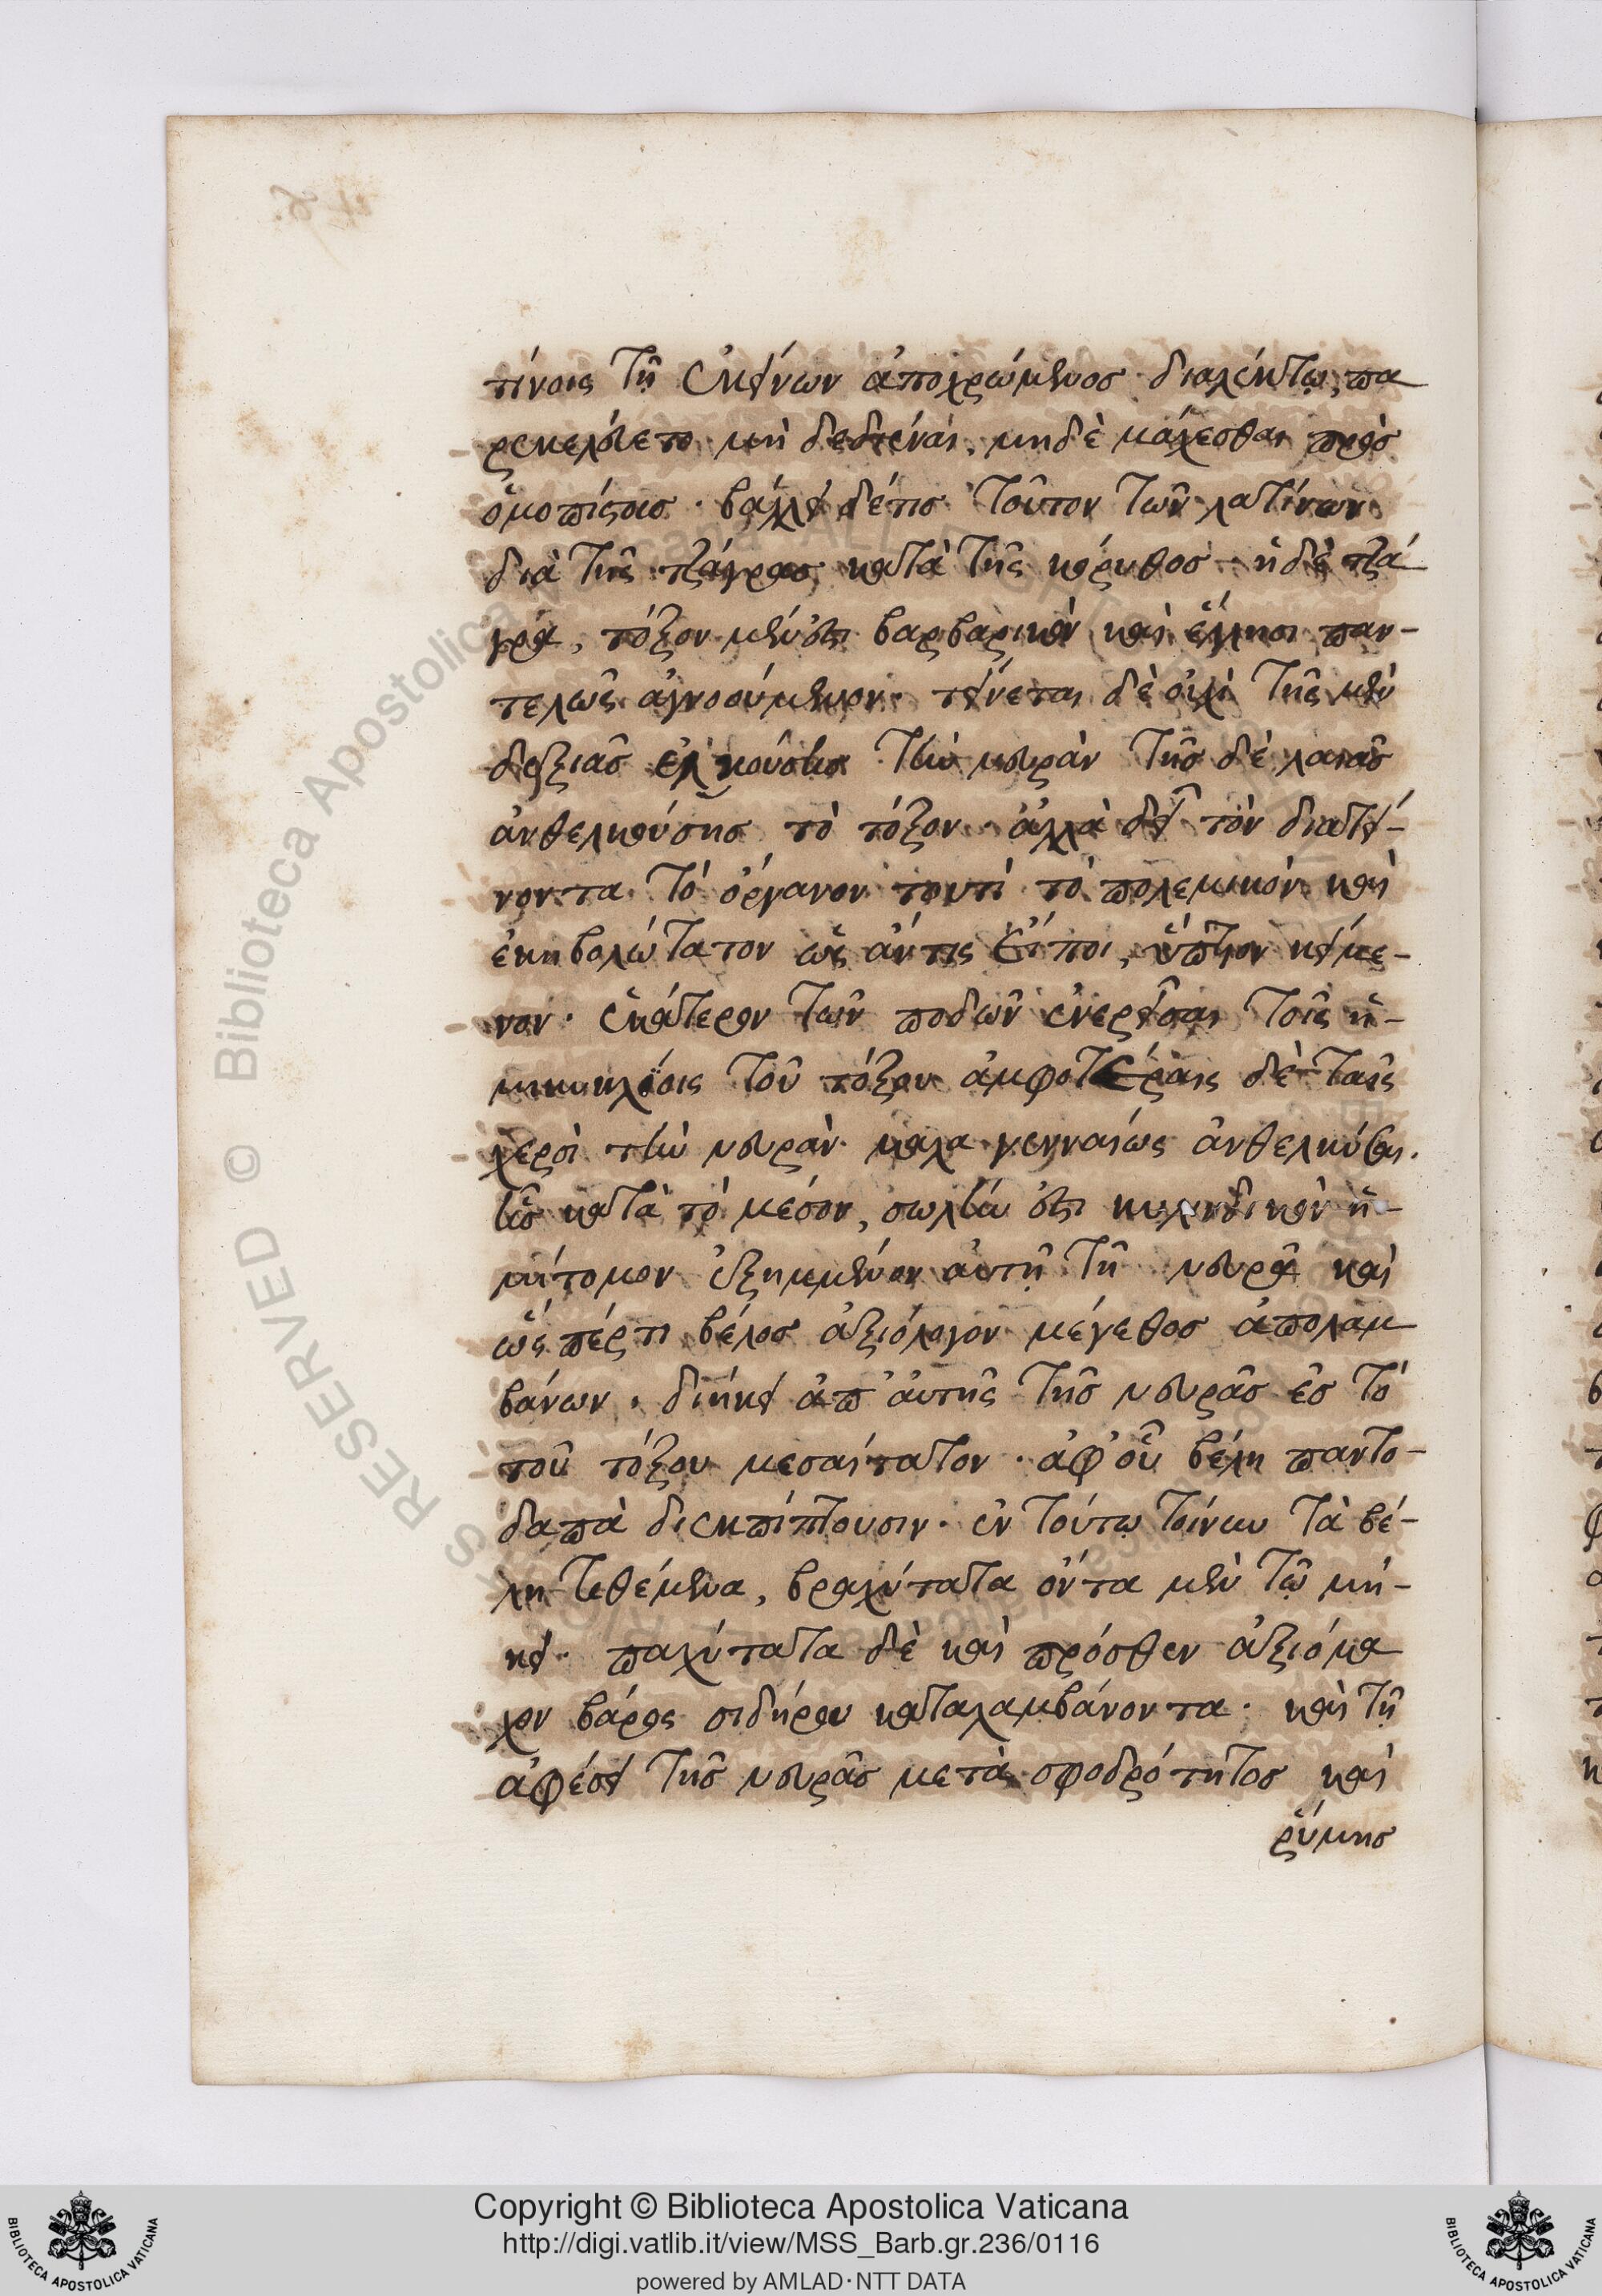 τίνοις τῇ ἐκείνων ἀποχρώμενος διαλέκτῳ, πα
ρεκελεύετο μὴ δεδιέναι, μηδὲ μάχεσθαι πρὸς
ὁμοπίστοις · βάλλει δέ τις τοῦτον τῶν λατίνων
διὰ τῆς τζάγρας κατὰ τῆς κόρυθος · ἡ δὲ τζά
γρα, τόξον μέν ἐστι βαρβαρικὸν καὶ ἕλλησι παν-
τελῶς ἀγνοούμενον · τείνεται δὲ οὐχὶ τῆς μὲν
δεξιᾶς ἑλκούσης τὴν νευρὰν τῆς δὲ λαιᾶς
ἀνθελκούσης τὸ τόξον · ἀλλὰ δεῖ τὸν διατεί-
νοντα τὸ ὄργανον τουτὶ τὸ πολεμικὸν καὶ
ἑκηβολώτατον ὡς ἄν τις εἴποι, ὕπτιον κείμε-
νον · ἑκάτερον τῶν ποδῶν ἐνερεῖσαι τοῖς ἡ-
μικυκλίοις τοῦ τόξου ἀμφοτέραις δὲ ταῖς
χερσὶ τὴν νευρὰν μάλα γενναίως ἀνθελκύσαι.
ἧς κατὰ τὸ μέσον, σωλήν ἐστι κυλινδικὸν ἡ-
μίτομον ἐξημμένον αὐτῇ τῇ νευρᾷ καὶ
ὥσπέρ τι βέλος ἀξιόλογον μέγεθος ἀπολαμ
βάνων · διήκει ἀπ' αὐτῆς τῆς νευρᾶς ἐς τὸ
τοῦ τόξου μεσαίτατον · ἀφ' οὗ βέλη παντο-
δαπὰ διεκπίπτουσιν · ἐν τούτῳ τοίνυν τὰ βέ-
λη τιθέμενα, βραχύτατα ὄντα μὲν τῷ μή-
κει · παχύτατα δὲ καὶ πρόσθεν ἀξιόμα
χον βάρος σιδήρου καταλαμβάνοντα · καὶ τῇ
ἀφέσει τῆς νευρᾶς μετὰ σφοδρότητος καὶ
ῥύμης
Copyright © Biblioteca Apostolica Vaticana
http://digi.vatlib.it/view/MSS_Barb.gr.236/0116
powered by AMLAD·NTT DATA
BIBLIOTECA APOSTOLICA VATICANA
BIBLIOTECA APOSTOLICA VATICANA